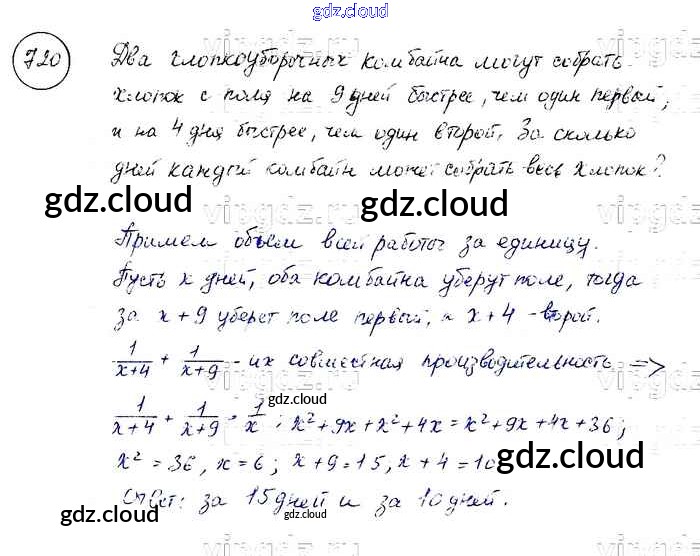 gdz.cloud
720
Два хлопкоуборочных комбайна могут собрать
хлопок с поля на 9 дней быстрее, чем один первый,
и на 4 дня быстрее, чем один второй. За сколько
дней каждый комбайн может собрать весь хлопок?
gdz.cloud gdz.cloud
Примем объем всей работы за единицу.
Пусть x дней, оба комбайна уберут поле, тогда
за x+9 уберет поле первый, а x+4 - второй.
1/(x+4) + 1/(x+9) - их совместная производительность =>
gdz.cloud
1/(x+4) + 1/(x+9) = 1/x ; x²+9x+x²+4x=x²+9x+4x+36;
x²=36, x=6; x+9=15, x+4=10
gdz.cloud gdz.cloud
Ответ: за 15 дней и за 10 дней.
gdz.cloud gdz.cloud